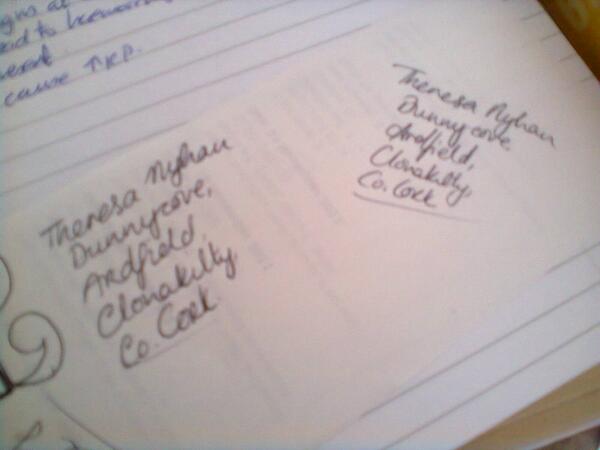 cause ↑RP.
Theresa Nyhan
Dunnycove,
Ardfield,
Clonakilty,
Co. Cork
Theresa Nyhan
Dunnycove,
Ardfield,
Clonakilty,
Co. Cork